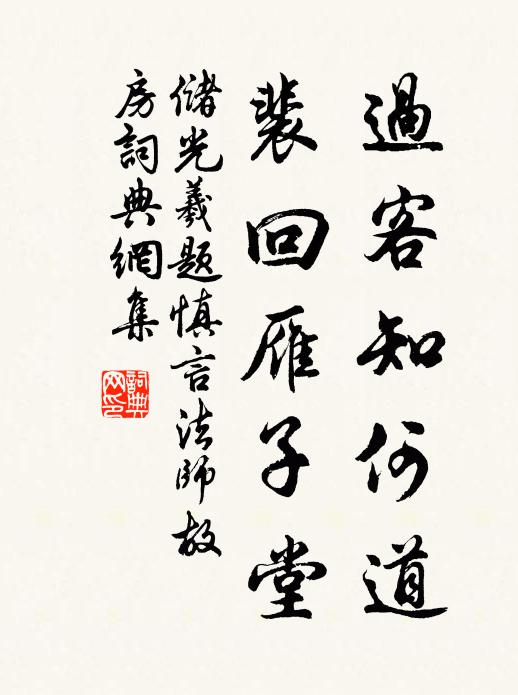 過客知何道
裴回雁子堂
儲光羲題慎言法師故
房詞典網集
詞典
网印